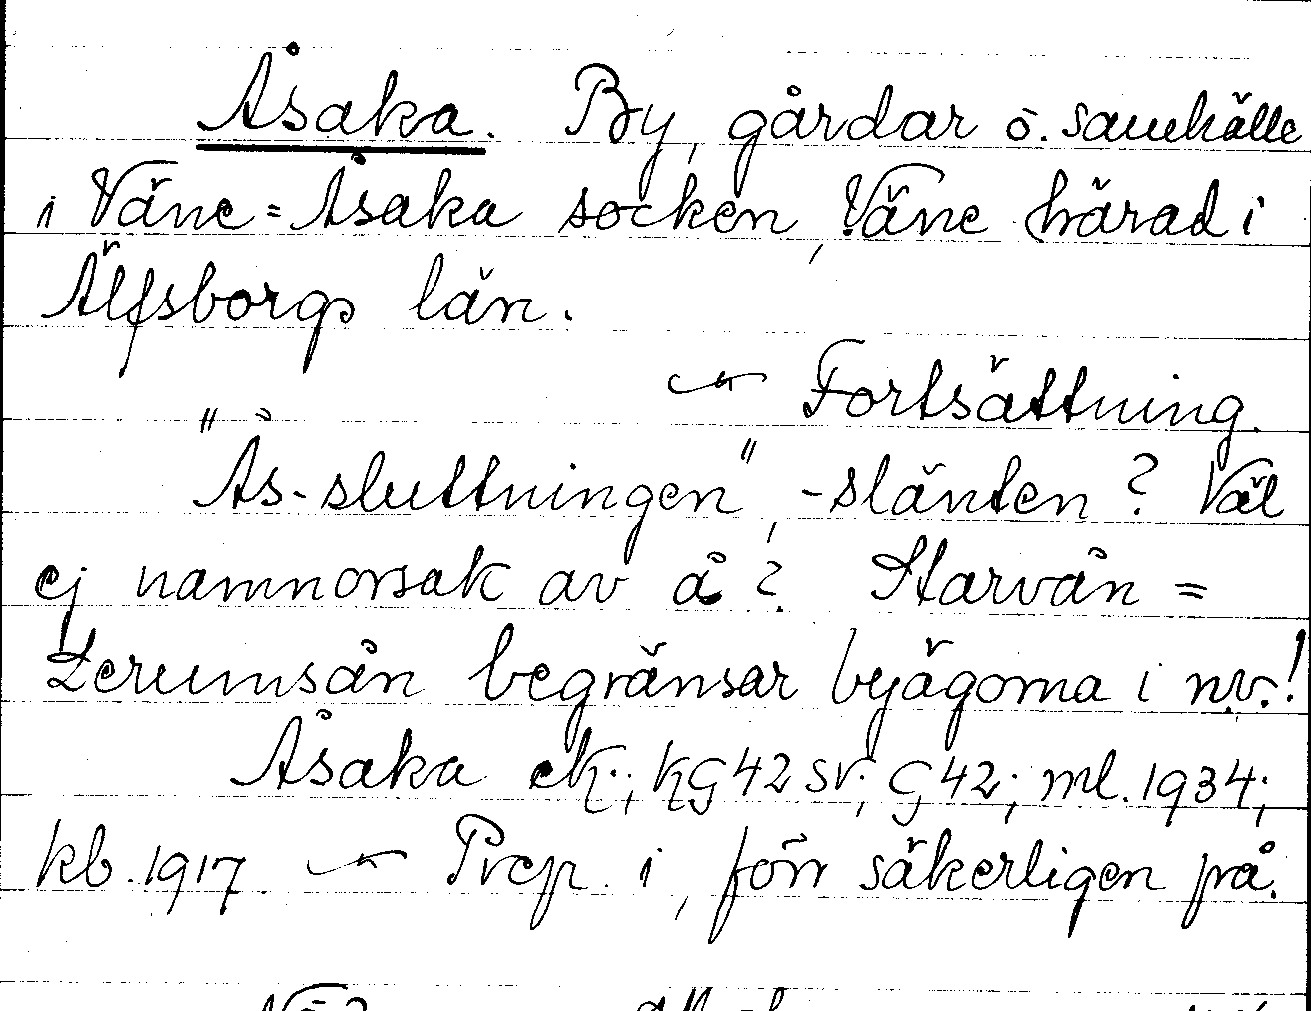 Åsaka. By, gårdar o. samhälle
i Väne=Åsaka socken, Väne härad i
Älfsborgs län.
Fortsättning.
"Ås-sluttningen", -slänten? Väl
ej namnorsak av å? Starvån =
Lerumsån begränsar byägorna i nv.!
Åsaka ek.; KG 42 SV; G 42; ml. 1934;
kb. 1917 ~ Prep. i, förr säkerligen på.